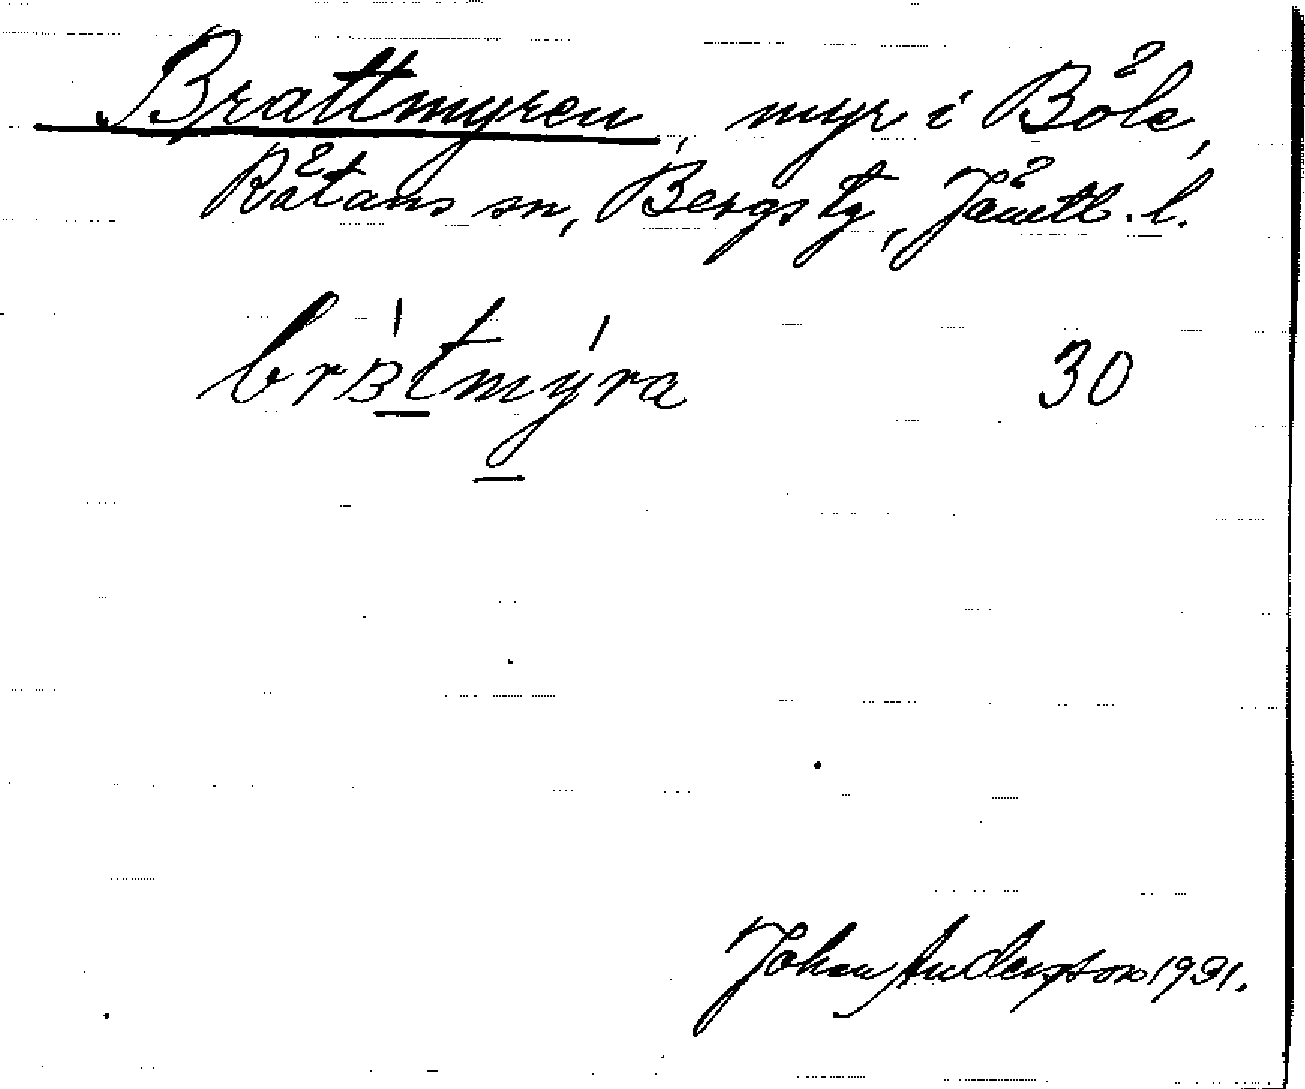 Brattmyren, myr i Böle,
Rätans sn, Bergs tg, Jämtl. l.
30
Johan Anderson 1921.